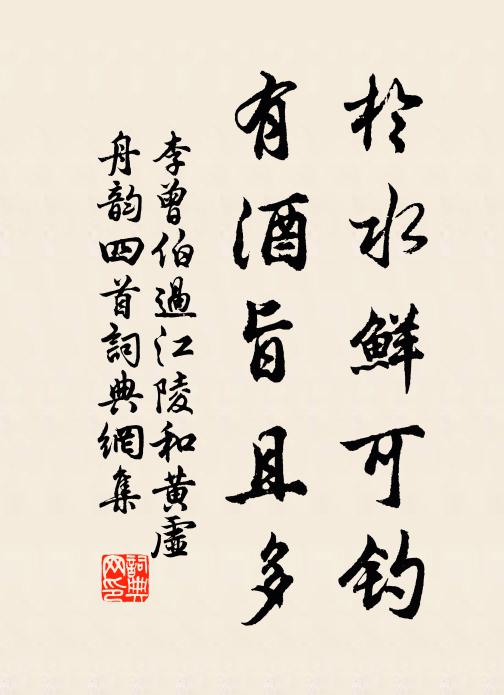 於水鮮可钓
有酒旨且多
李曾伯過江陵和黄虛
舟韵四首詞典網集
詞典
网印